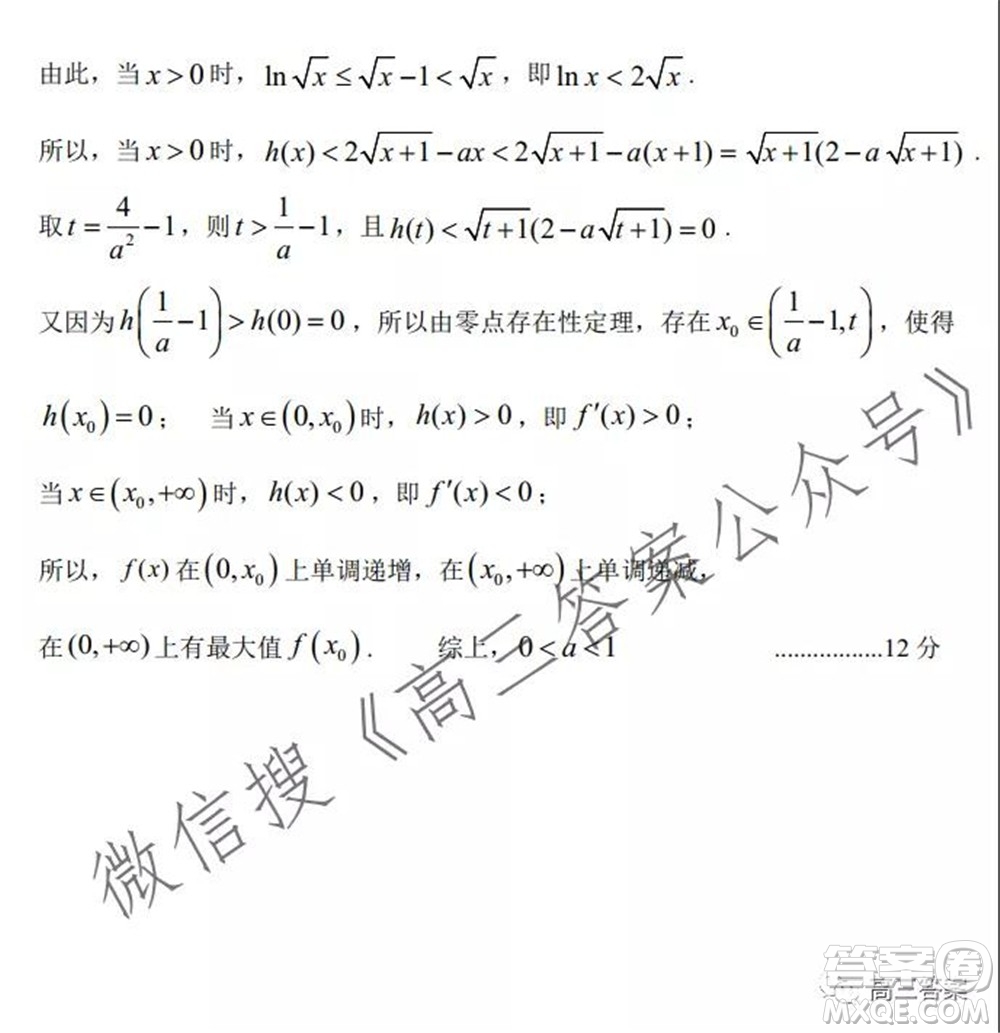 由此，当 x>0 时，ln√x ≤ √x−1 < √x，即 ln x < 2√x．
所以，当 x>0 时，h(x) < 2√(x+1) − ax < 2√(x+1) − a(x+1) = √(x+1)(2−a√(x+1))．
取 t = 4/a² − 1，则 t > 1/a − 1，且 h(t) < √(t+1)(2−a√(t+1)) = 0．
又因为 h(1/a − 1) > h(0) = 0，所以由零点存在性定理，存在 x₀ ∈ (1/a − 1, t)，使得
h(x₀) = 0； 当 x∈(0, x₀) 时，h(x) > 0，即 f′(x) > 0；
当 x∈(x₀, +∞) 时，h(x) < 0，即 f′(x) < 0；
所以，f(x) 在 (0, x₀) 上单调递增，在 (x₀, +∞) 上单调递减，
在 (0, +∞) 上有最大值 f(x₀)． 综上，0 < a < 1 ..................12 分
微信搜《高三答案公众号》
答案圈
高三答案
MXQE.COM